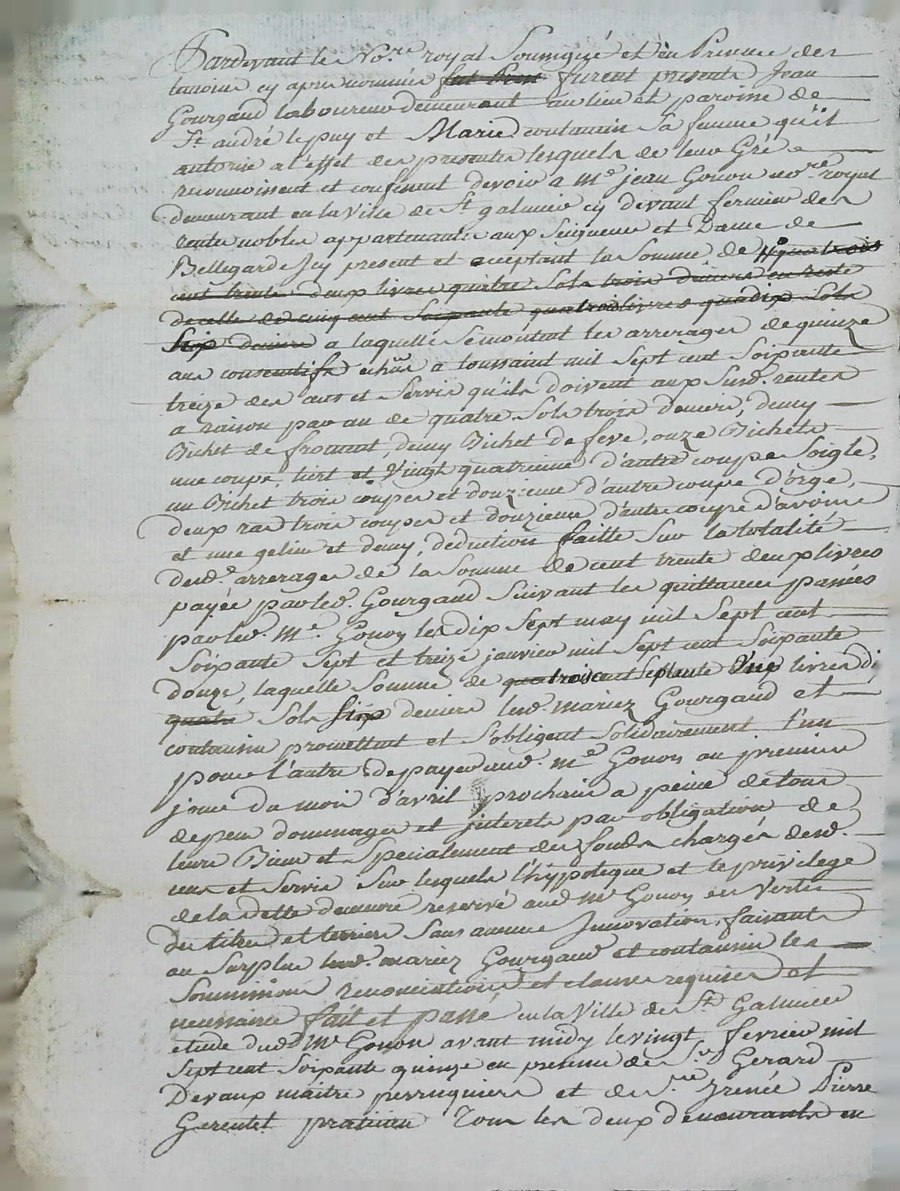 Pardevant le No.re royal Soussigné et en Presence des
temoins cy apres nommés fut furent presents Jean
Gourgaud laboureur demeurant au lieu et paroisse de
St andré le puy et Marie coutausin sa femme qu'il
autorise a l'effet des presentes lesquels de leur Gré
reconnoissent et confessent devoir a Me jean Gonon no.re royal
demeurant en la Ville de St galmier cy devant fermier des
rentes nobles appartenantes aux Seigneur et Dame de
Bellegarde Icy present et acceptant la Somme de quatrois
cent trente deux livres quatre Sols trois deniers en reste
de celle de cinq cent Soixante quatre livres quadix Sols
Six deniers a laquelle se montent les arrerages de quinze
ans consecutifs echus a toussaint mil Sept cent Soixante
treize des cens et Servis qu'ils doivent aux Susd. rentes
a raison par an de quatre Sols trois deniers, demy
Bichet de froment, demy Bichet de feve, onze Bichets
une coupe, tiert et Vingt quatrieme d'autre coupe Soigle,
un Bichet trois coupes et douzieme d'autre coupe d'orge,
deux ras trois coupes et douzieme d'autre coupe d'avoine
et une geline et demy, deduction faitte Sur la totalité
desd. arrerages de la Somme de cent trente deux livres
payée par led. Gourgaud Suivant les quittances passées
par led. Me. Gonon les dix Sept may mil Sept cent
Soixante Sept et treize janvier mil Sept cent Soixante
douze, laquelle Somme de quatroiscent Septante Une livres di
quatre Sols Six deniers lesd. mariez Gourgaud et
coutausin promettent et S'obligent Solidairement l'un
pour l'autre de payer aud. Me Gonon au premier
jour du mois d'avril prochain a peine de tous
depens dommages et jnterets par obligation de
leurs Biens et Specialement des fonds chargés desd.
cens et Servis Sur lesquels l'hypoteque et le privilege
de la dette demeure reservé aud. Me Gonon en Vertu
des titres et terriers Sans aucune Jnnovation, faisants
au Surplus lesd. mariez Gourgaud et coutausin les
Soumissions renonciations et clauses requises et
necessaires fait et passé en la Ville de St Galmier
etude dud. Me Gonon avant midy le vingt fevrier mil
Sept cent Soixante quinze en presence de Sr Gerard
Devaux maitre perruquier et de Sieur Irenée Pierre
Gerentet praticien Tous les deux demeurants en